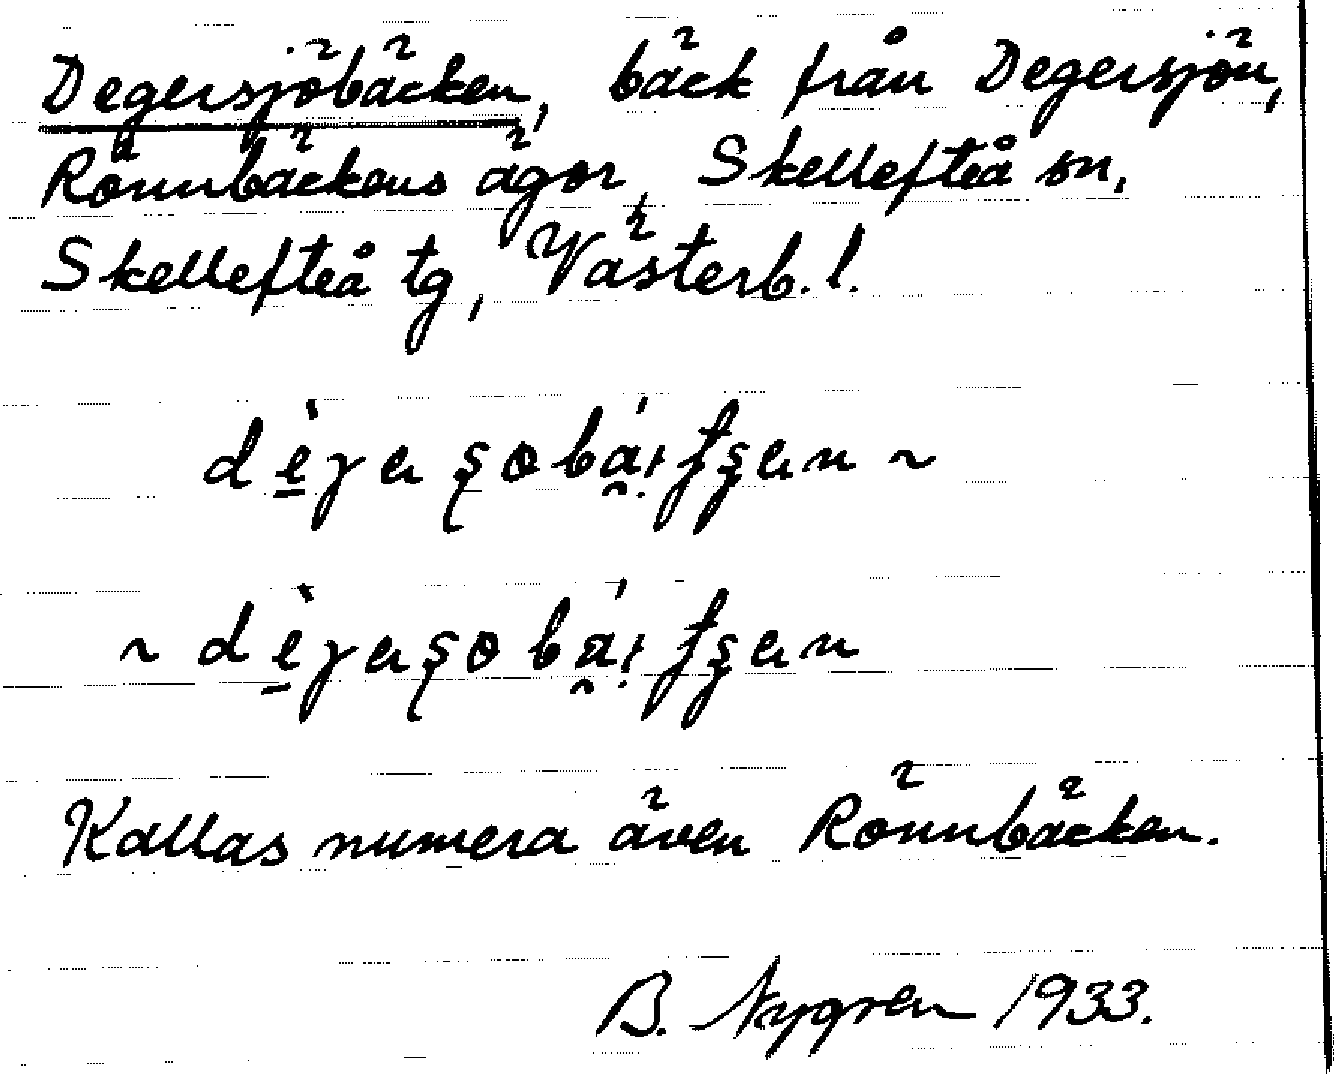 Degersjöbäcken, bäck från Degersjön,
Rönnbäckens ägor, Skellefteå sn,
Skellefteå tg, Västerb. l.
Kallas numera även Rönnbäcken.
B. Nygren 1933.